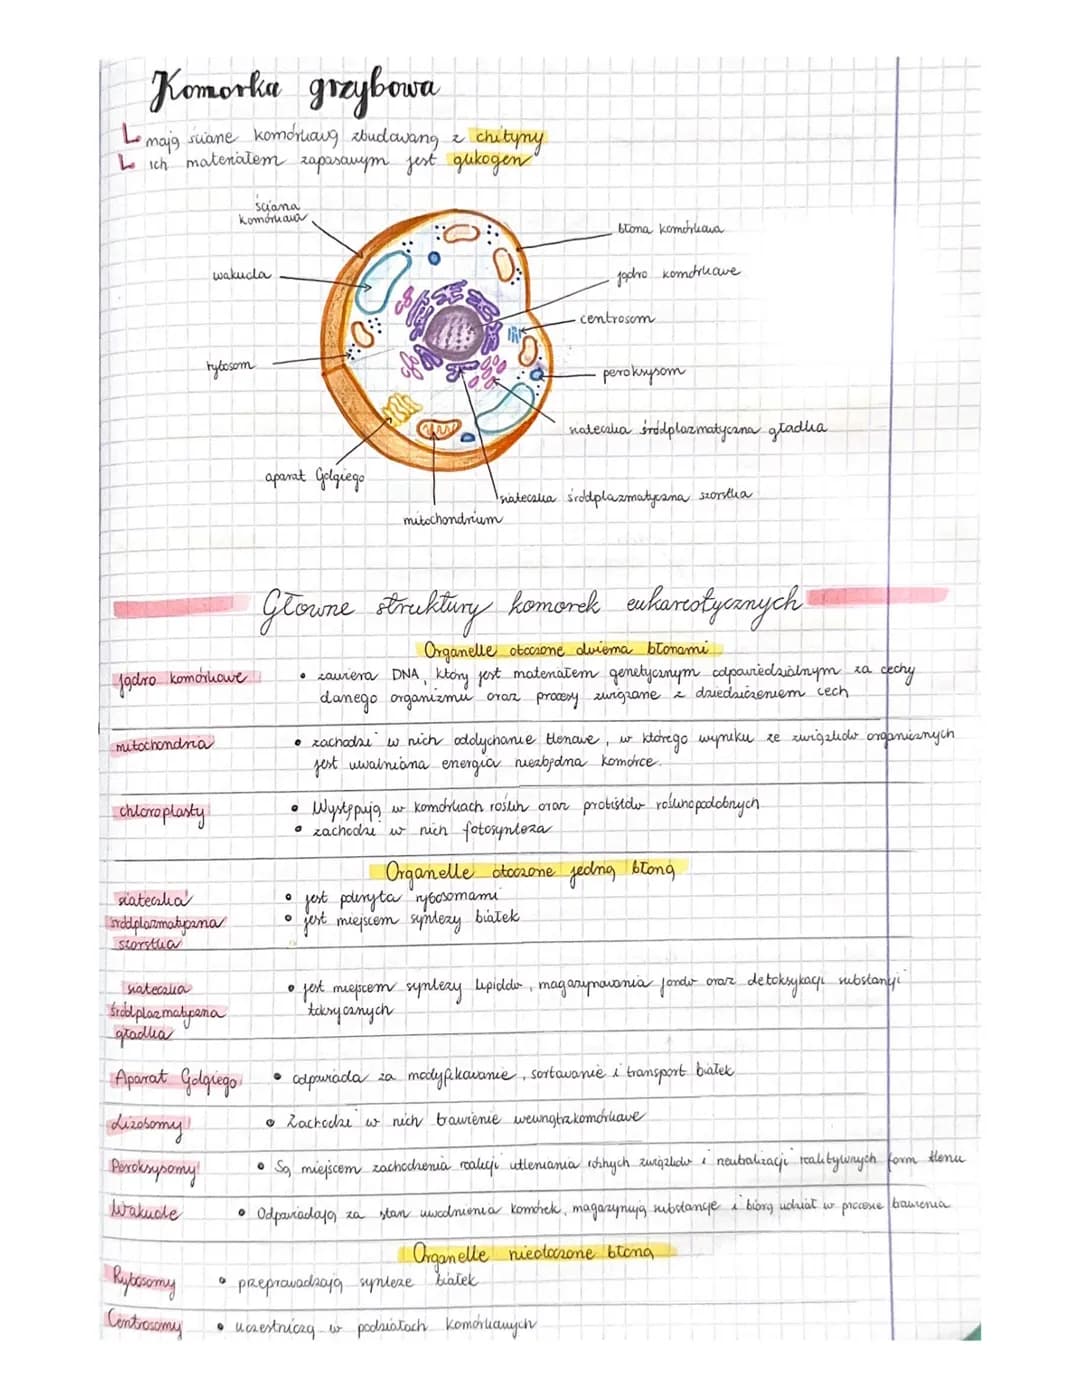 Komorka grzybowa
mają ścianę komórkową zbudowaną z chityny
ich materiałem zapasowym jest glikogen
ściana
komórkowa
błona komórkowa
wakuola
jądro komórkowe
centrosom
rybosom
peroksysom
siateczka śródplazmatyczna gładka
aparat Golgiego
siateczka śródplazmatyczna szorstka
mitochondrium
Głowne struktury komorek eukariotycznych
Organelle otoczone dwiema błonami
jądro komórkowe
• zawiera DNA, który jest materiałem genetycznym odpowiedzialnym za cechy
danego organizmu oraz procesy związane z dziedziczeniem cech
mitochondria
• zachodzi w nich oddychanie tlenowe, w którego wyniku ze związków organicznych
jest uwalniana energia niezbędna komórce.
chloroplasty
• Występują w komórkach roślin oraz protistów roślinopodobnych
• zachodzi w nich fotosynteza
Organelle otoczone jedną błoną
siateczka
śródplazmatyczna
szorstka
• jest pokryta rybosomami
• jest miejscem syntezy białek
siateczka
śródplazmatyczna
gładka
• jest miejscem syntezy lipidów, magazynowania jonów oraz detoksykacji substancji
toksycznych
Aparat Golgiego
• odpowiada za modyfikowanie, sortowanie i transport białek
Lizosomy
• Zachodzi w nich trawienie wewnątrzkomórkowe
Peroksysomy
• Są miejscem zachodzenia reakcji utleniania różnych związków i neutralizacji reaktywnych form tlenu
Wakuole
• Odpowiadają za stan uwodnienia komórek, magazynują substancje i biorą udział w procesie trawienia
Organelle nieotoczone błoną
Rybosomy
• przeprowadzają syntezę białek
Centrosomy
• uczestniczą w podziałach komórkowych